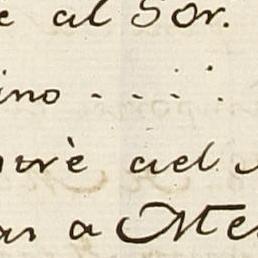 e al Sor.
ino . . . . :
urè del
as a Me